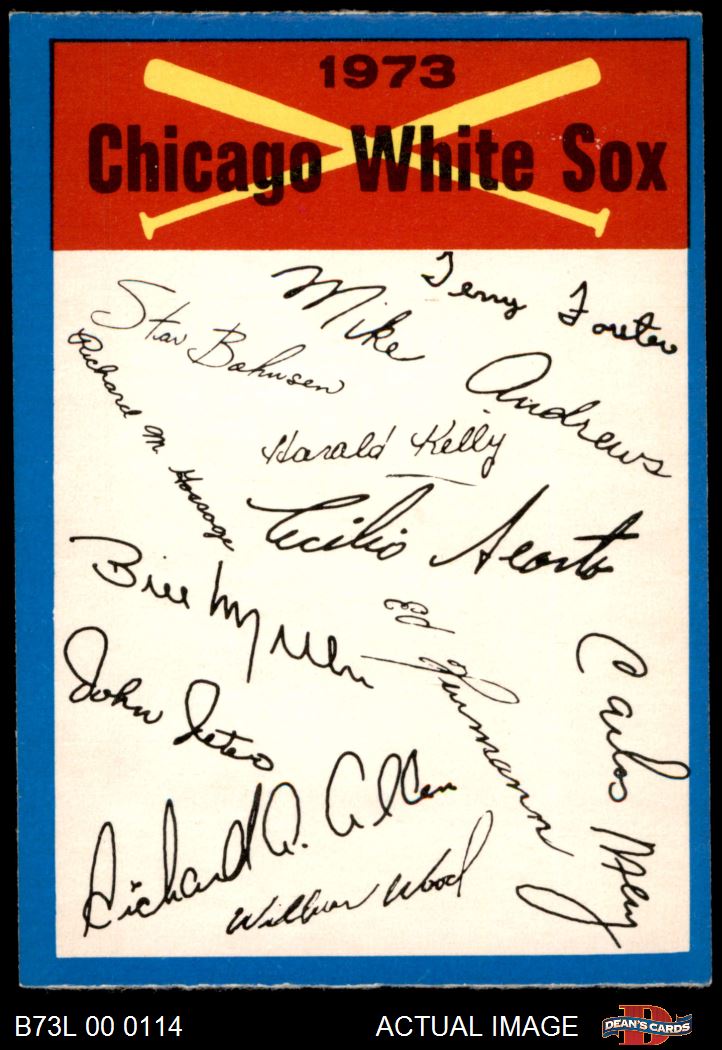 1973
Chicago White Sox
Terry Forster
Mike Andrews
Stan Bahnsen
Richard M. Gossage
Harold Kelly
Cecilio Acosta
Bill Melton
Ed Herrmann
Carlos May
John Jeter
Richard A. Allen
Wilbur Wood
B73L 00 0114
ACTUAL IMAGE
DEAN'S CARDS